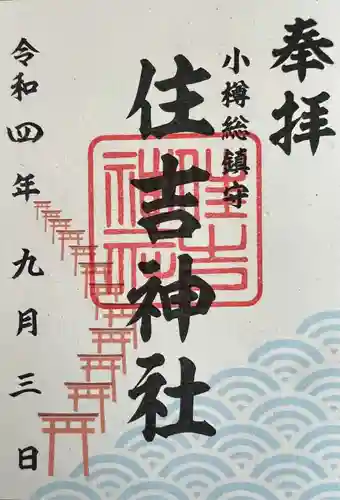 奉拝
小樽総鎮守
住吉神社
令和四年九月三日
住吉神社